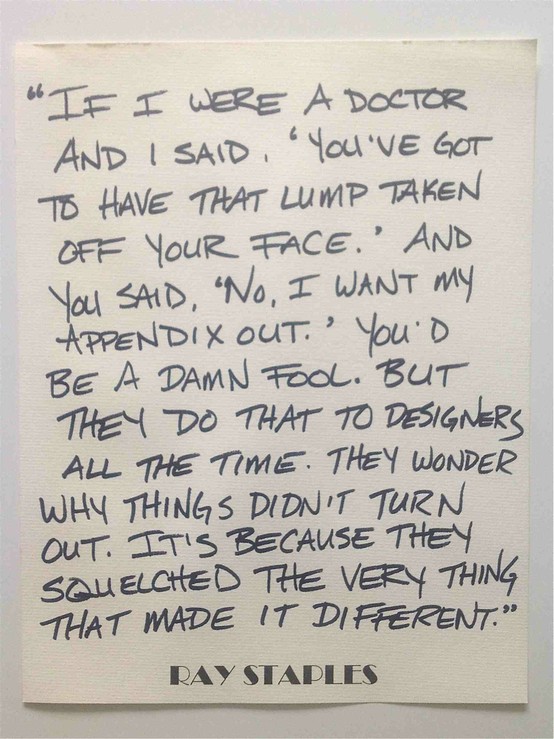 “IF I WERE A DOCTOR
AND I SAID, ‘YOU'VE GOT
TO HAVE THAT LUMP TAKEN
OFF YOUR FACE.’ AND
YOU SAID, ‘NO, I WANT MY
APPENDIX OUT.’ YOU'D
BE A DAMN FOOL. BUT
THEY DO THAT TO DESIGNERS
ALL THE TIME. THEY WONDER
WHY THINGS DIDN'T TURN
OUT. IT'S BECAUSE THEY
SQUELCHED THE VERY THING
THAT MADE IT DIFFERENT.”
RAY STAPLES